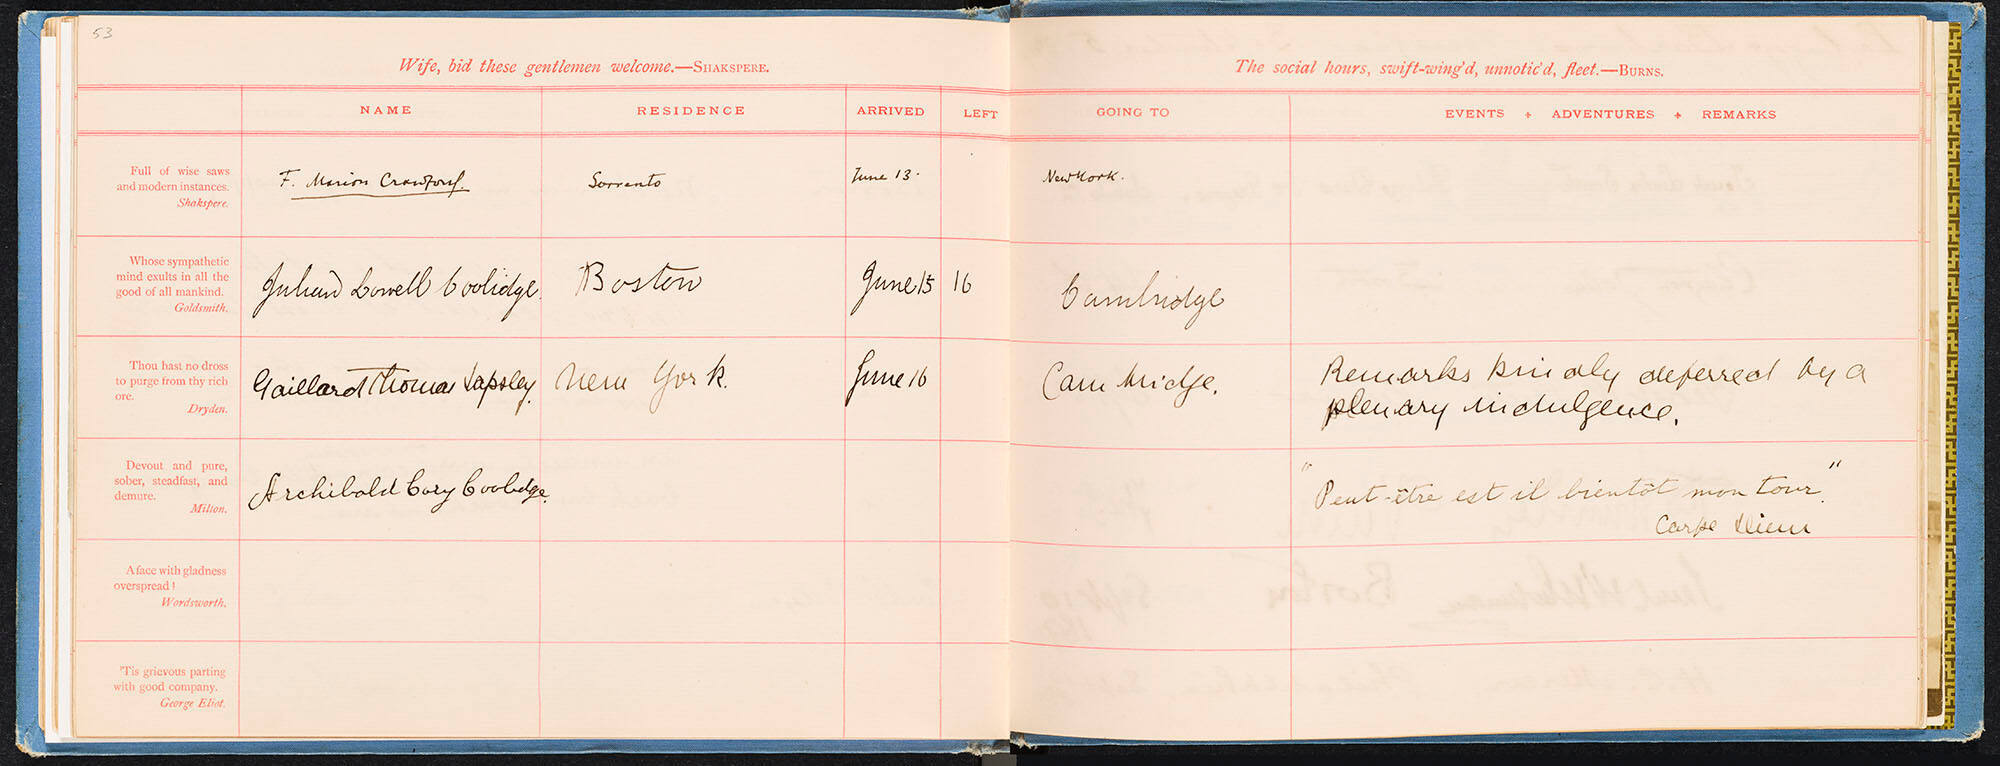 53
Wife, bid these gentlemen welcome.—SHAKSPERE.
The social hours, swift-wing'd, unnotic'd, fleet.—BURNS.
NAME RESIDENCE ARRIVED LEFT GOING TO EVENTS + ADVENTURES + REMARKS
Full of wise saws
and modern instances.
Shakspere.
F. Marion Crawford. Sorrento June 13. New York.
Whose sympathetic
mind exults in all the
good of all mankind.
Goldsmith.
Julian Lowell Coolidge. Boston June 15 16 Cambridge
Thou hast no dross
to purge from thy rich
ore.
Dryden.
Gaillard Thomas Lapsley. New York. June 16 Cambridge.
Remarks kindly deferred by a
plenary indulgence.
Devout and pure,
sober, steadfast, and
demure.
Milton.
Archibald Cary Coolidge.
"Peut-être est il bientôt mon tour."
Carpe Diem
A face with gladness
overspread!
Wordsworth.
'Tis grievous parting
with good company.
George Eliot.